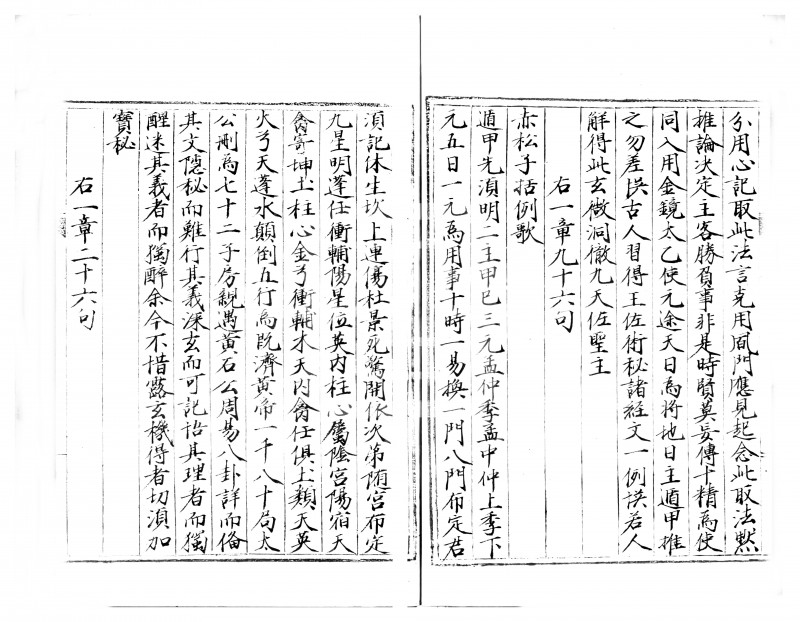 分用心記取此法言克用凬門應見起念此取法黙
推論决定主客勝負事非是時賢莫妄傳十精為使
同入用金鏡太乙使元途天目為將地目主遁甲推
之勿差悮古人習得王佐術秘諸経文一例悮若人
解得此玄微洞徹九天佐聖主
右一章九十六句
赤松子括例歌
遁甲先湏明二主甲巳三元孟仲季孟中仲上季下
元五日一元為用事十時一易換一門八門布定君
湏記休生坎上連傷杜景死驚開依次苐随宮布定
九星明蓬任衝輔陽星位英内柱心屬陰宮陽宿天
禽寄坤土柱心金兮衝輔木天内禽任俱土類天英
火兮天蓬水顛倒五行為既濟黄帝一千八十局太
公刪為七十二子房親遇黄石公周易八卦詳而俻
其文隠秘而難行其義深玄而可記詁其理者而獨
醒迷其義者而獨醉余今不惜露玄機得者切湏加
寳秘
右一章二十六句